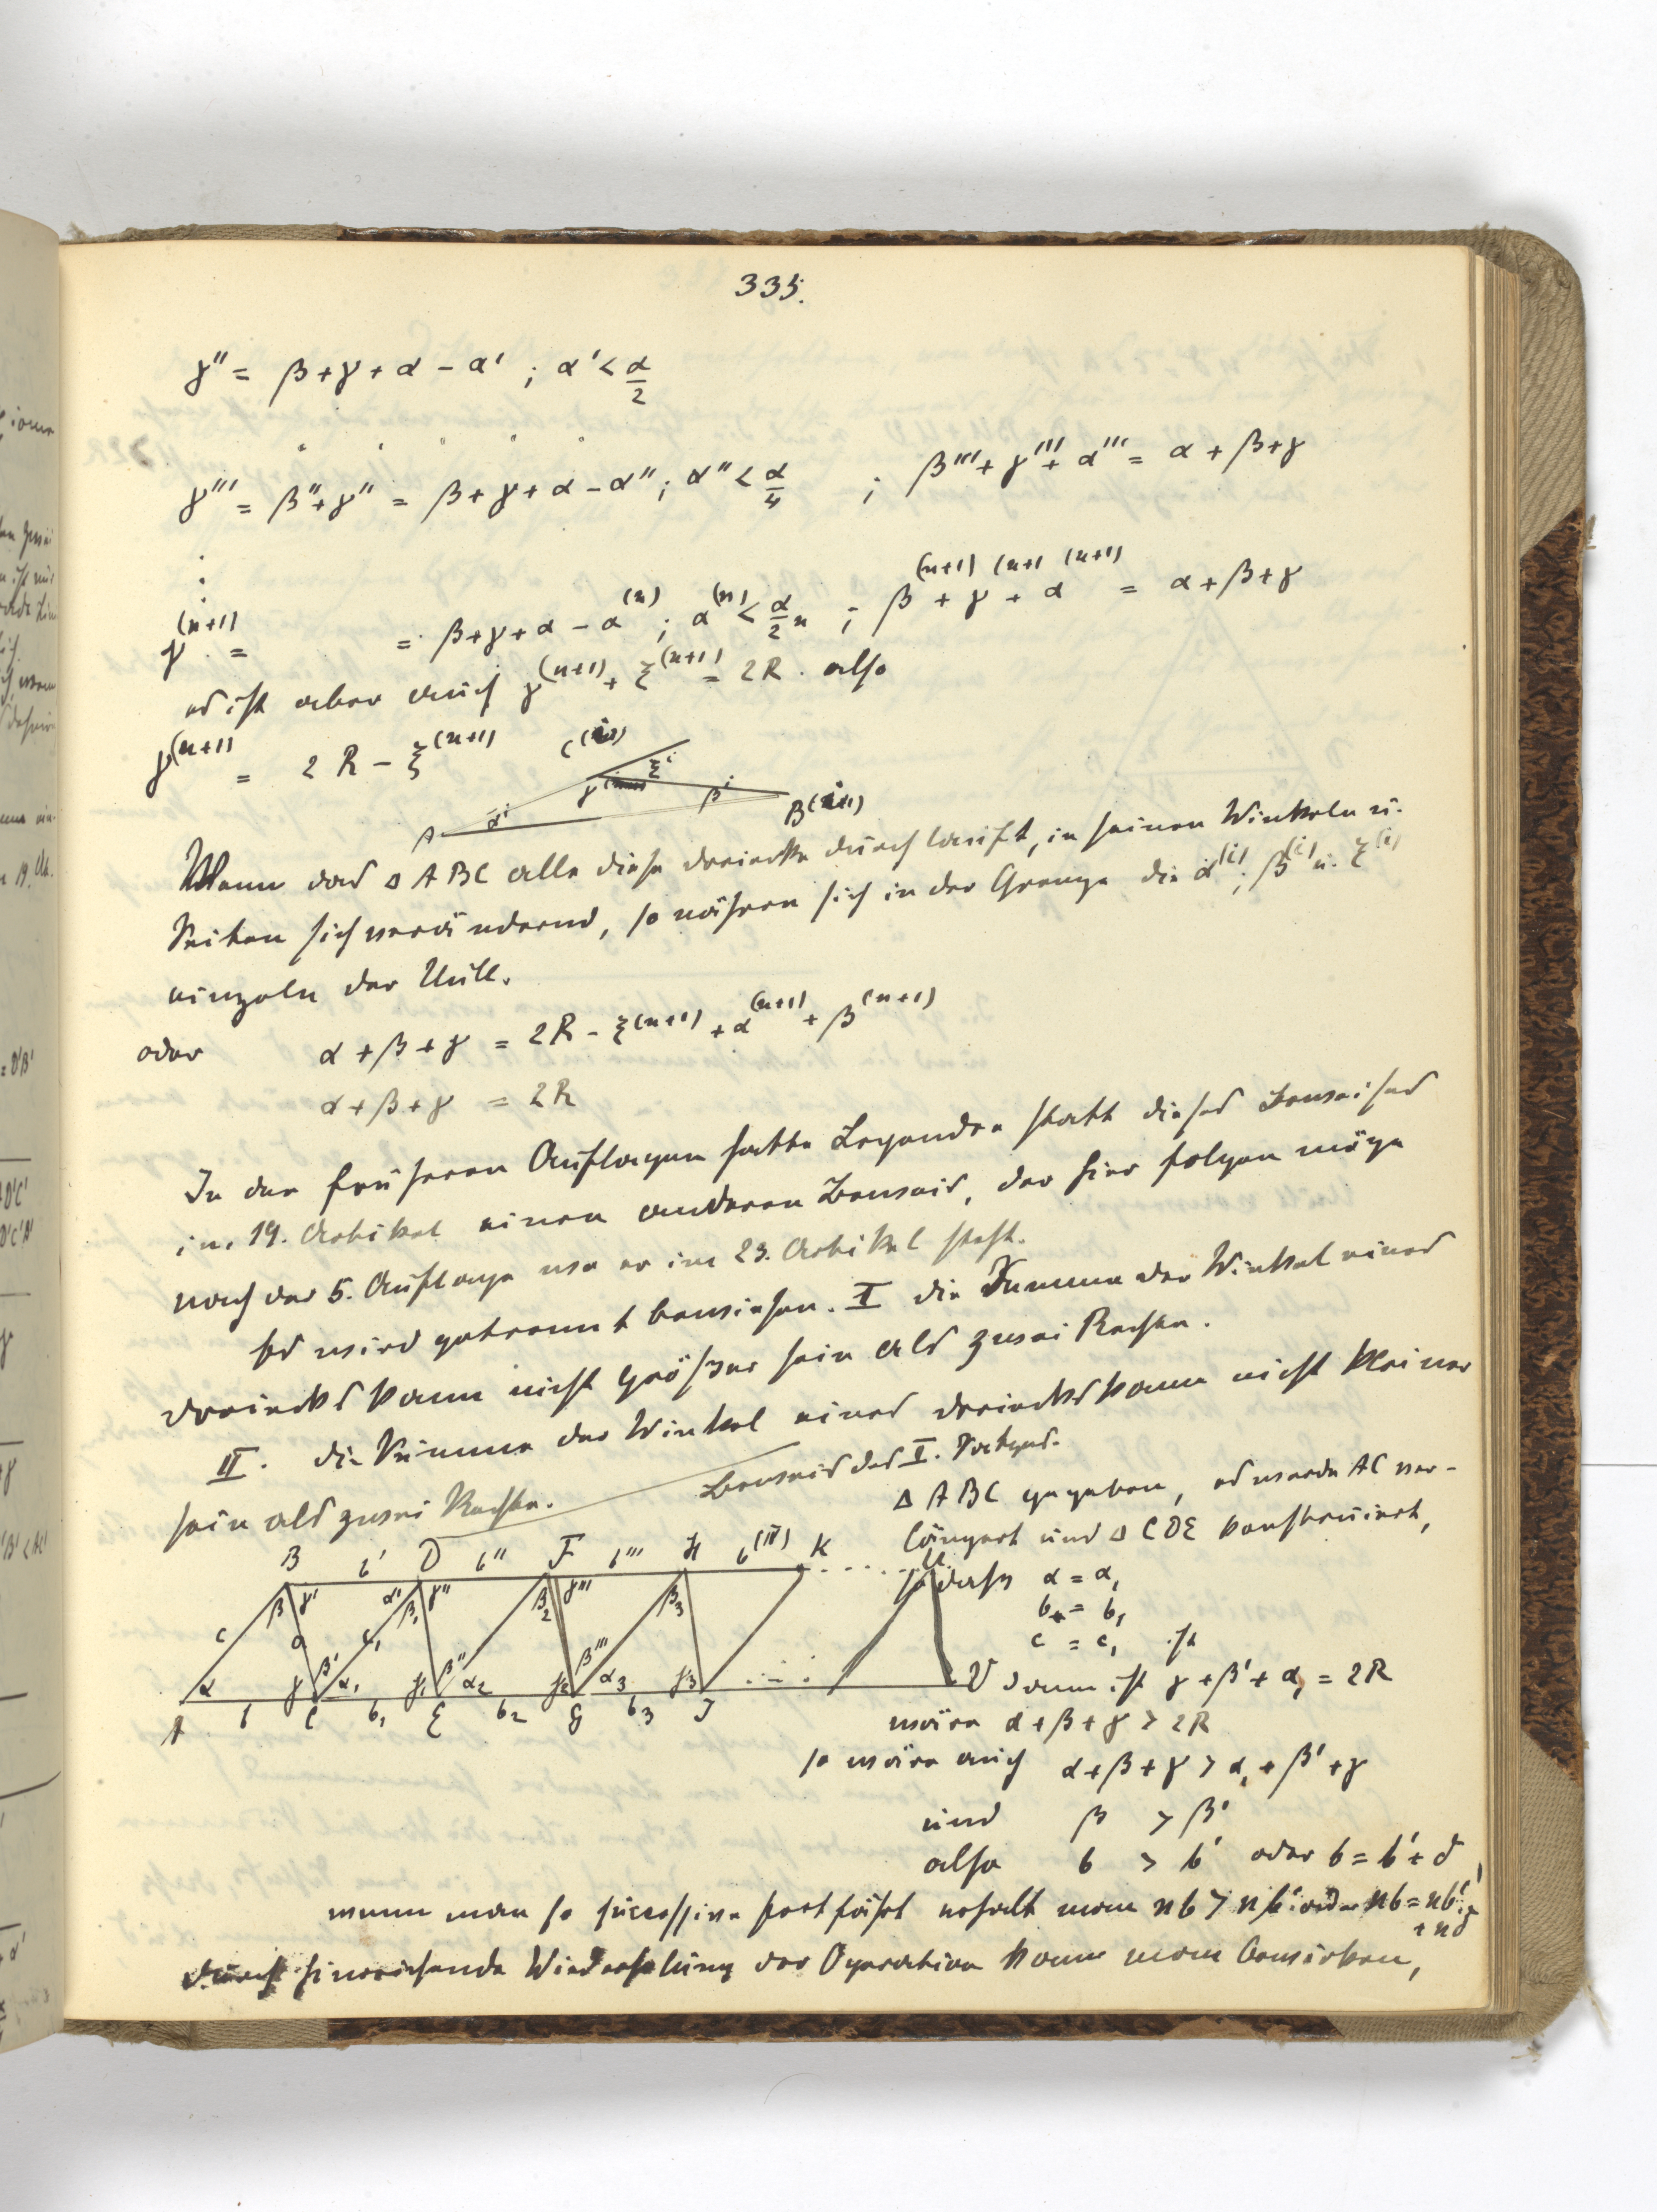 335.
γ'' = β + γ + α − α' ; α' < α/2
γ''' = β'' + γ'' = β + γ + α − α'' ; α'' < α/4 ; β''' + γ''' + α''' = α + β + γ
γ^(n+1) = = β + γ + α − α^(n) ; α^(n) < α/2^n ; β^(n+1) + γ^(n+1) + α^(n+1) = α + β + γ
es ist aber auch γ^(n+1) + ξ^(n+1) = 2R. also
γ^(n+1) = 2R − ξ^(n+1)
C^(i) ξ^i
A α^i γ β^i B
Wenn das Δ ABC alle diese dreiecke durchlauft, in seinen Winkeln u.
Seiten sich verändernd, so nähren sich in der Grenze die α^(i), β^(i) u. ξ^(i)
einzeln der Null.
oder α + β + γ = 2R − ξ^(n+1) + α^(n+1) + β^(n+1)
α + β + γ = 2R
In den früheren Auflagen hatte Legendre statt dieses Beweises
im 19. Artikel einen anderen Beweis, der hier folgen möge
nach der 5. Auflage wo er im 23. Artikel steht.
Es wird getrennt bewiesen. I die Summe der Winkel eines
dreiecks kann nicht größer sein als zwei Rechte.
II. die Summe der Winkel eines dreiecks kann nicht kleiner
sein als zwei Rechte. Beweis des I. Satzes.
Δ ABC gegeben, es werde AC ver-
längert und Δ CDE konstruiert,
B b' D b'' F b''' H b^(IV) K . . . . U
so dass α = α₁
b = b₁
c = c₁ ist
β γ' α' β₁ γ'' β₂ γ''' β₃
c a c₁
α γ β' α₁ γ₁ β'' α₂ γ₂ β''' α₃ γ₃ . . . V
A b C b₁ E b₂ G b₃ J
dann ist γ + β' + α₁ = 2R
wäre α + β + γ > 2R
so wäre auch α + β + γ > α₁ + β' + γ
und β > β'
also b > b' oder b = b' + δ,
wenn man so successive fortfährt erhält man nb > nb' oder nb = nb' + nδ
durch hinreichende Wiederholung der Operation kann man bewirken,